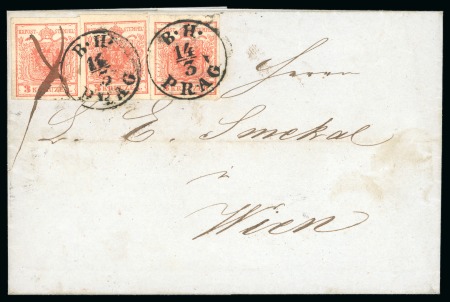 B. H.
14
3
PRAG
B. H.
14
3
PRAG
Herrn
L. E. Smekal
in
Wien